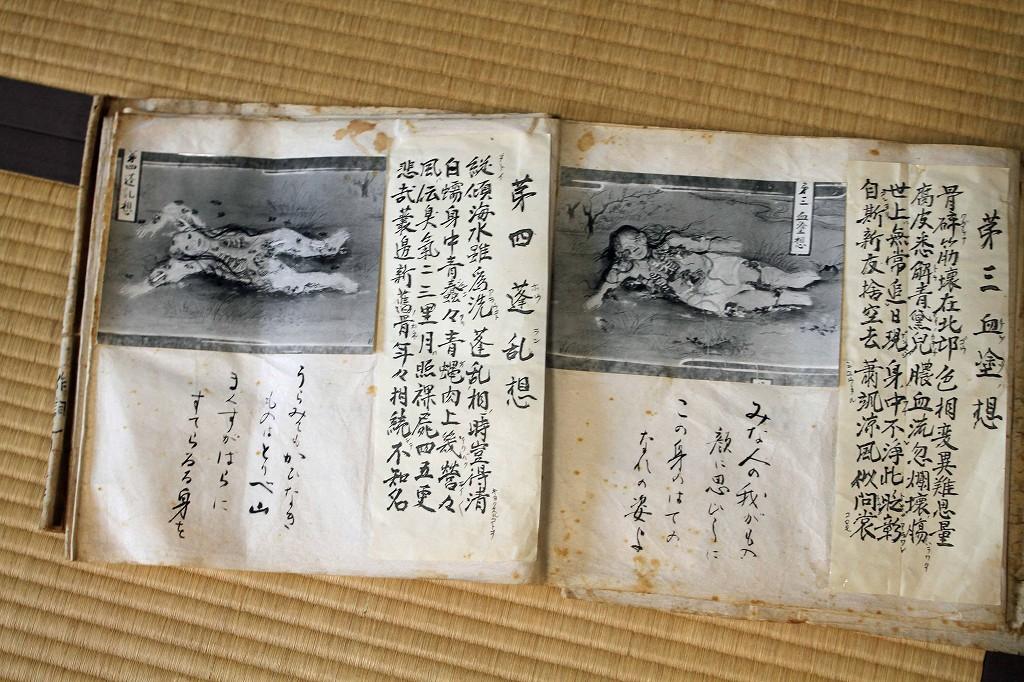 苐三血塗想
骨碎筋壊在北邙色相変異難思量
腐皮悉解青黛皃膿血流忽爛壊膓
世上無常追日現身中不浄此彰
自斯新友捨空去蕭颯凉風似問裳
第三血塗想
みな人の我がもの
顔に思ひしに
この身のはての
なれの姿よ
苐四蓬乱想
縦傾海水雖爲洗蓬乱相時豈得清
白蠕身中青蠢々青蝿肉上幾營々
風伝臭氣二三里月照裸屍四五更
悲哉叢邊新舊骨年々相続不知名
第四蓬乱想
うらみてもかひなき
ものはとりべ山
まくずがはらに
すてらるる身を